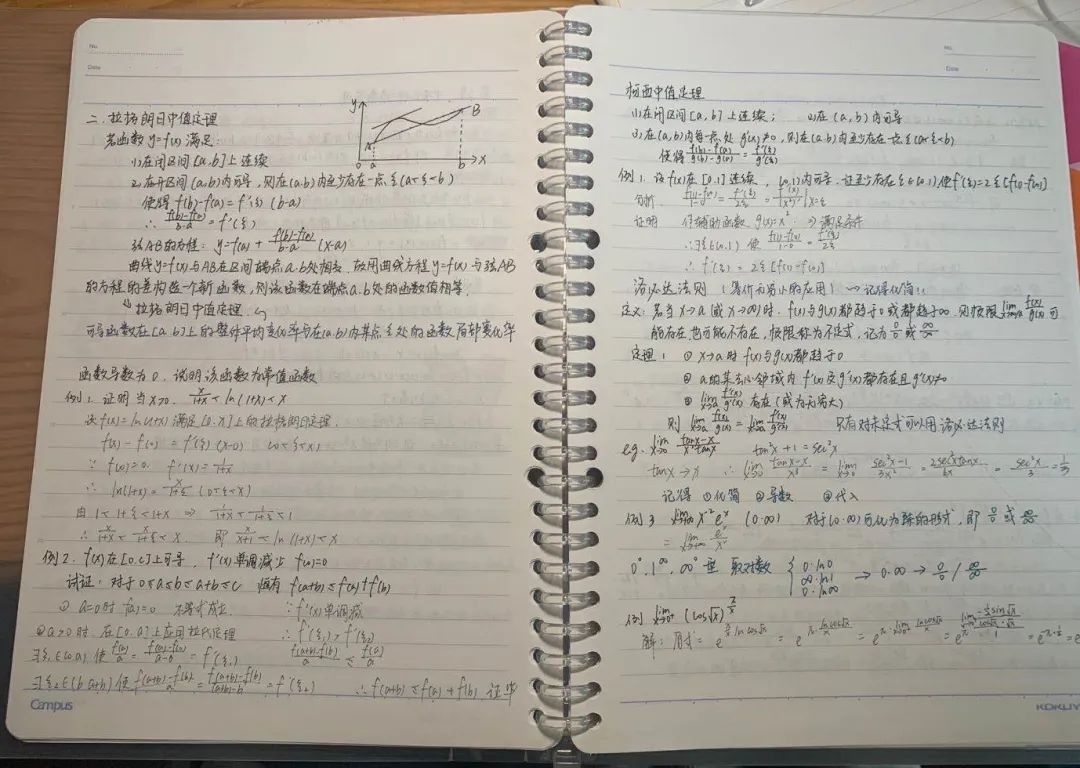 No.
Date
二.拉格朗日中值定理
若函数 y=f(x) 满足:
(1)在闭区间[a,b]上连续
(2)在开区间(a,b)内可导,则在(a,b)内至少存在一点ξ(a<ξ<b)
使得 f(b)-f(a)=f'(ξ)(b-a)
∴ (f(b)-f(a))/(b-a) = f'(ξ)
弦AB的方程: y=f(a)+ (f(b)-f(a))/(b-a) (x-a)
曲线y=f(x)与AB在区间端点a.b处相交,故用曲线方程y=f(x)与弦AB
的方程的差构造一个新函数,则该函数在端点a.b处的函数值相等.
↳拉格朗日中值定理
可导函数在[a,b]上的整体平均变化率与在(a,b)内某点ξ处的函数局部变化率
函数导数为0,说明该函数为常值函数
例1.证明当x>0, x/(1+x) < ln(1+x) < x
设f(x)=ln(1+x)满足[0,x]上的拉格朗日定理
f(x)-f(0)=f'(ξ)(x-0) (0<ξ<x)
∵ f(0)=0 f'(x)=1/(1+x)
∴ ln(1+x)= x/(1+ξ) (0<ξ<x)
由 1<1+ξ<1+x ⇒ 1/(1+x) < 1/(1+ξ) < 1
∴ x/(1+x) < x/(1+ξ) < x. 即 x/(x+1) < ln(1+x) < x
例2. f(x)在[0,c]上可导, f'(x)单调减少 f(0)=0
试证:对于0≤a≤b≤a+b≤c 恒有 f(a+b)≤f(a)+f(b)
① a=0时 f(a)=0 不等式成立 ∵f'(x)单调减
②a>0时,在[0,a]上应用拉氏定理 ∴f'(ξ₁)>f'(ξ₂)
∃ξ₁∈(0,a) 使 f(a)/a = (f(a)-f(0))/(a-0) = f'(ξ₁) (f(a+b)-f(b))/a ≤ f(a)/a
∃ξ₂∈(b,a+b) 使 (f(a+b)-f(b))/a = (f(a+b)-f(b))/((a+b)-b) = f'(ξ₂) ∴f(a+b)≤f(a)+f(b) 证毕
Campus
y
A
B
0
a
b
x
No.
Date
柯西中值定理
(1)在闭区间[a,b]上连续; (2)在(a,b)内可导
(3)在(a,b)内每一点处 g'(x)≠0,则在(a,b)内至少存在一点ξ(a<ξ<b)
使得 (f(b)-f(a))/(g(b)-g(a)) = f'(ξ)/g'(ξ)
例1.设f(x)在[0,1]连续,(0,1)内可导.证至少存在ξ∈(0,1)使f'(ξ)=2ξ[f(1)-f(0)]
分析. (f(1)-f(0))/(1-0) = f'(ξ)/2ξ = f'(x)/(x²)' |x=ξ
证明 作辅助函数 g(x)=x² ⇒ 满足条件
∴∃ξ∈(0,1) 使 (f(1)-f(0))/(1-0) = f'(ξ)/2ξ
∴ f'(ξ)=2ξ[f(1)-f(0)]
洛必达法则 (等价无穷小的应用) → 记得化简!!
定义:若当x→a(或x→∞)时,f(x)与g(x)都趋于0或都趋于∞.则极限 lim x→a f(x)/g(x) 可
能存在,也可能不存在,极限称为不定式,记为 0/0 或 ∞/∞
定理1 ① x→a时 f(x)与g(x)都趋于0
② a的某去心邻域内 f'(x)及g'(x)都存在且g'(x)≠0
③ lim x→a f'(x)/g'(x) 存在(或为无穷大)
则 lim x→a f(x)/g(x) = lim x→a f'(x)/g'(x) 只有对未定式可以用洛必达法则
e.g. lim x→0 (tanx-x)/(x²tanx) tan²x+1=sec²x
tanx→x ∴ lim x→0 (tanx-x)/x³ = lim x→0 (sec²x-1)/3x² = 2sec²xtanx/6x = sec²x/3 = 1/3
记得 ①化简 ②导数 ③代入
例3 lim x→+∞ x⁻²eˣ (0·∞) 对于(0·∞)可化为除的形式,即 0/0 或 ∞/∞
= lim x→+∞ eˣ/x²
0⁰,1^∞,∞⁰型 取对数 { 0·ln0 ∞·ln1 0·ln∞ → 0·∞ → 0/0 / ∞/∞
例 lim x→0⁺ (cos√x)^(π/x)
解:原式= e^(π/x · ln cos√x) = e^(π· ln cos√x / x)
KOKUY